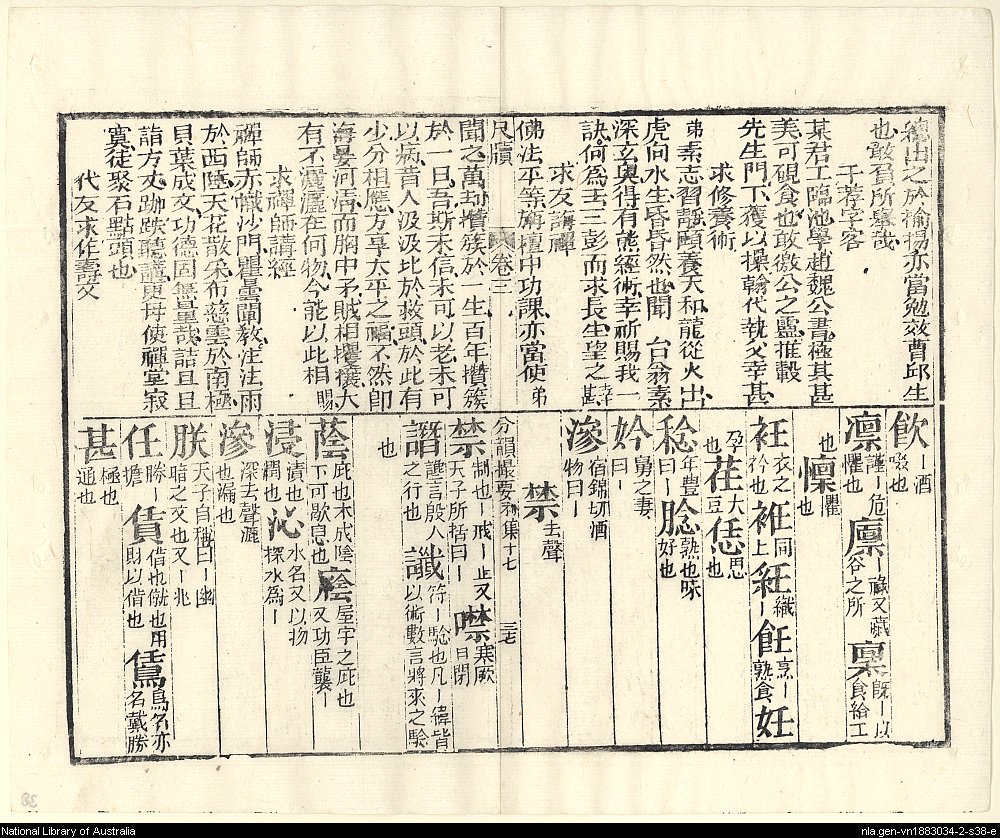 德出之於揄揚亦當勉效曹邱生
也敢負所舉哉
于荐字客
某君工臨池學趙魏公書極其甚
美可硯食也敢徼公之靈推轂
先生門下獲以操翰代執父幸甚
求修養術
弟素志習靜頤養天和龍從火出
虎向水生昏昏然也聞 台翁素
深玄奥得有熊經術幸祈賜我一
訣何為三彭而求長生望之幸甚
求友講禪
佛法平等旃檀中功課亦當使弟
尺牘 卷三
聞之萬刧攢簇於一生百年攢簇
於一日吾斯未信未可以老未可
以病昔人汲汲比於救頭於此有
少分相應方享太平之福不然卽
海晏河清而胸中矛賊相攖攘大
有不灑灑在何物今能以此相賜
求禪師講經
禪師赤幟沙門瞿曇聞教注法雨
於西陲天花散采布慈雲於南極
貝葉成文功德固無量哉詰旦且
詣方丈跏趺聽講更毋使禪室寂
寞徒聚石點頭也
代友求作壽文
飮 ー酒啜也
凛 謹ー危懼也 廩 ー祿又藏谷之所 稟 旣ー以食給工
也 懍 懼也
衽 衣之衿也 袵 同上 紝 織ー 飪 烹ー熟食 妊
孕也 荏 大豆 恁 思也
稔 年豊曰ー 腍 熟也味好也
妗 舅之妻曰ー
滲 宿錦切酒物曰ー
禁 去聲
分韻撮要利集十七 三七
禁 制也ー戒ー止又天子所居曰ー 噤 寒厥口閉
譖 讒言殷人之行也 讖 符ー騐也凡ー緯皆以術數言將來之騐
也
蔭 庇也木成陰下可歇息也 廕 屋宇之庇也又功臣襲ー
浸 漬也潤也 沁 水名又以物探水為ー
滲 深去聲漉也漏也
朕 天子自稱曰ー幽暗之文也又ー兆
任 勝ー擔 賃 借也僦也用財以借也 鵀 鳥名亦名戴勝
甚 極也通也
38
National Library of Australia
nla.gen-vn1883034-2-s38-e